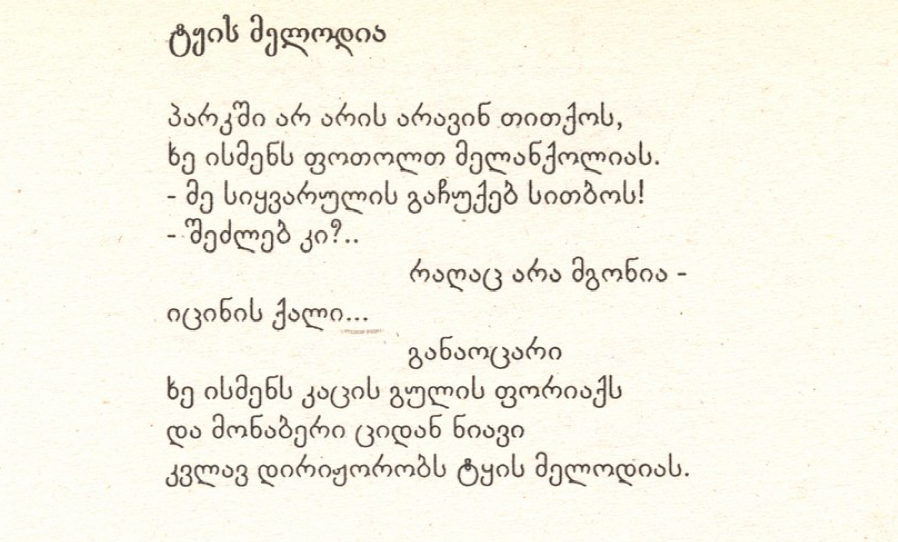 ტყის მელოდია
პარკში არ არის არავინ თითქოს,
ხე ისმენს ფოთოლთ მელანქოლიას.
- მე სიყვარულის გაჩუქებ სითბოს!
- შეძლებ კი?..
რაღაც არა მგონია -
იცინის ქალი...
განაოცარი
ხე ისმენს კაცის გულის ფორიაქს
და მონაბერი ციდან ნიავი
კვლავ დირიჟორობს ტყის მელოდიას.